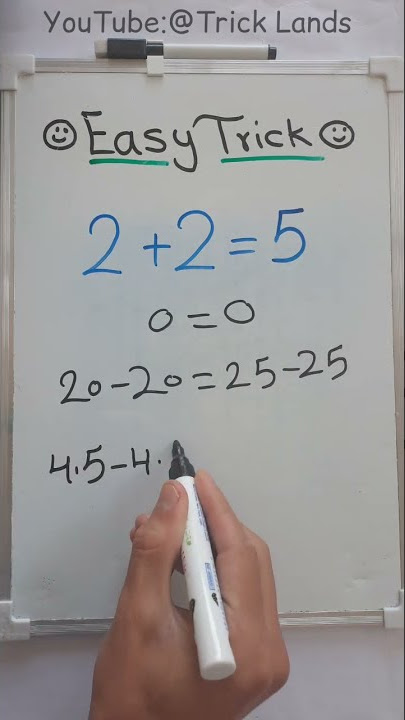 YouTube:@Trick Lands
☺Easy Trick☺
2+2=5
0=0
20-20=25-25
4.5-4.